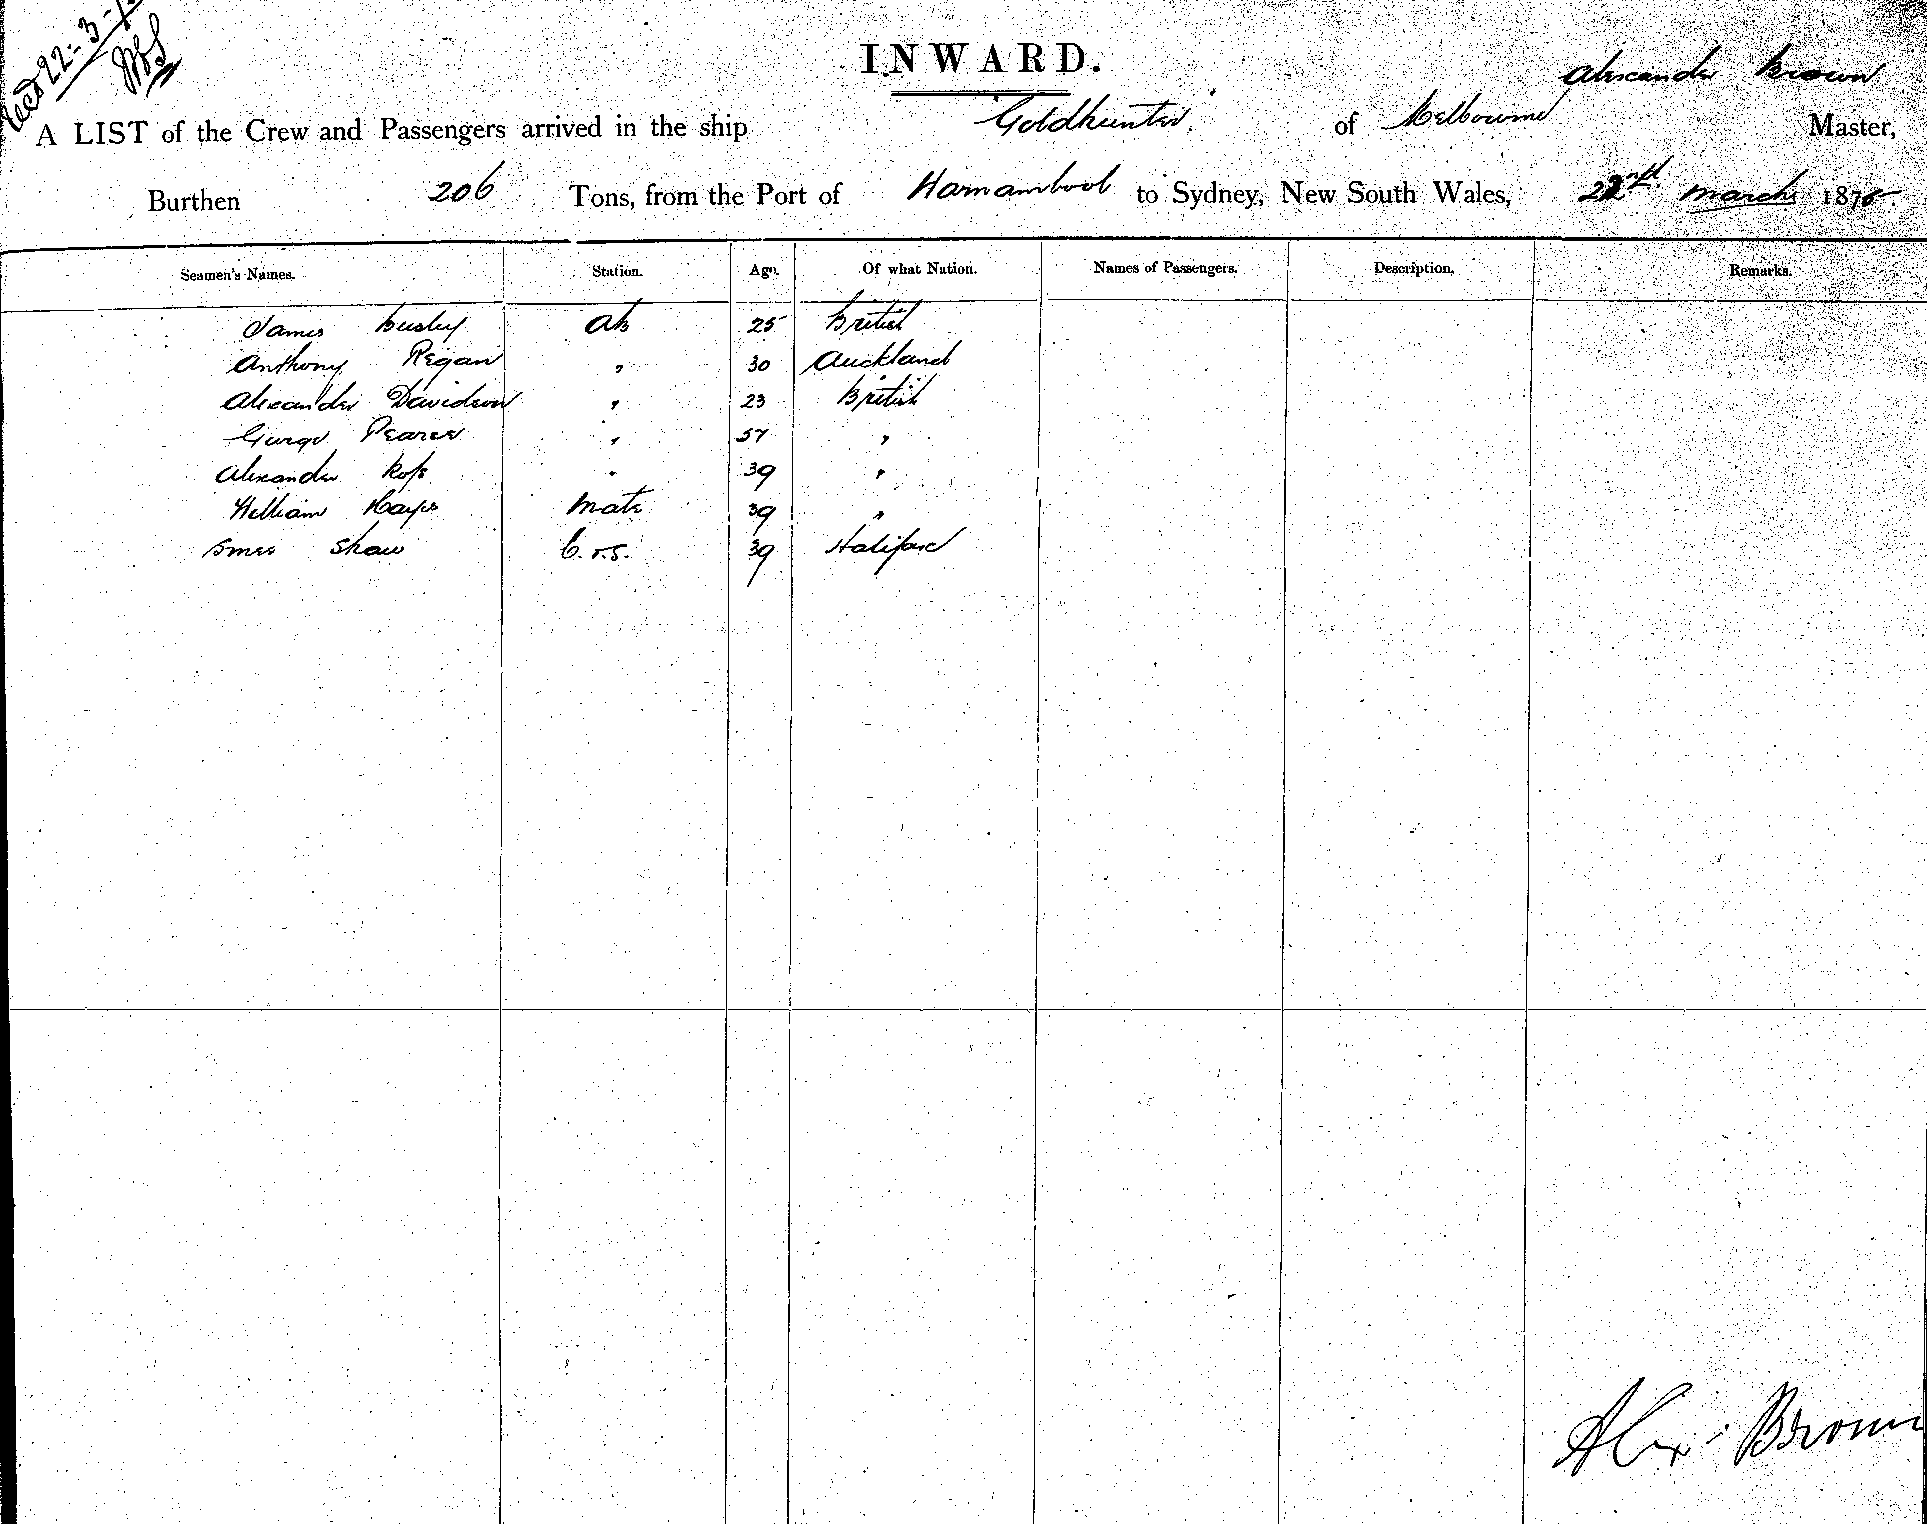 Recd 22-3-7
INWARD.
Alexander Brown
A LIST of the Crew and Passengers arrived in the ship "Goldhunter" of Melbourne Master,
Burthen 206 Tons, from the Port of Warnambool to Sydney, New South Wales, 22nd March 1875
Seamen's Names. Station. Age. Of what Nation. Names of Passengers. Description. Remarks.
James AB 25 British
Anthony Regan " 30 Auckland
Alexander Davidson " 23 British
George Pearce " 57 "
Alexander Ross " 39 "
William Hayes Mate 39 "
Shaw C.&S. 39
Alex Brown